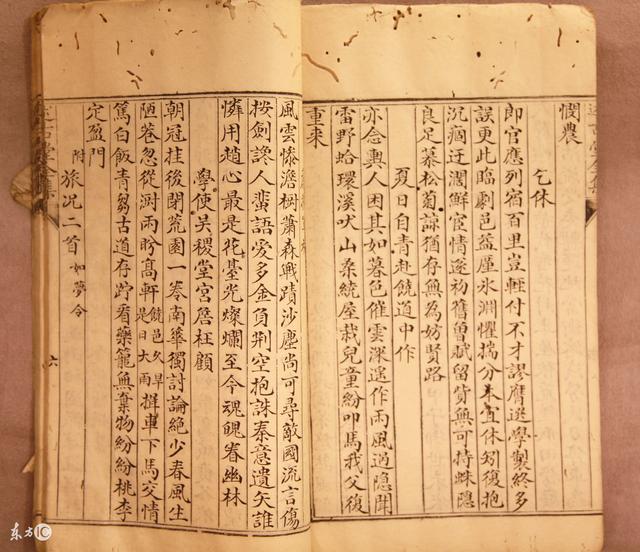 憫農
乞休
郎官應列宿百里豈輕付不才謬膺選學製終多
誤更此臨劇邑益厪氷淵懼揣分本宜休矧復抱
沉痼迂濶鮮宦情遂初舊曾賦留貲無可持蛛隱
良足慕松菊諒猶存無為妨賢路
夏日自青赴饒道中作
亦念輿人困其如暮色催雲深遙作雨風過隱聞
雷野蛤環溪吠山桑統屋栽兒童紛叩馬我父復
重來
風雲慘澹樹蕭森戰蹟沙塵尚可尋敵國流言傷
按劍讒人蜚語愛多金負荆空抱誅秦意遺矢誰
憐用趙心最是花臺光燦爛至今魂魄眷幽林
學使吴稷堂宮詹枉顧
朝冠挂後閉荒園一卷南華獨討論絶少春風生
陋巷忽從澍雨盼高軒饒邑久旱是日大雨搿車下馬交情
篤白飯青芻古道存貯看藥籠無棄物紛紛桃李
定盈門
附旅况二首如夢令
六
东方IC